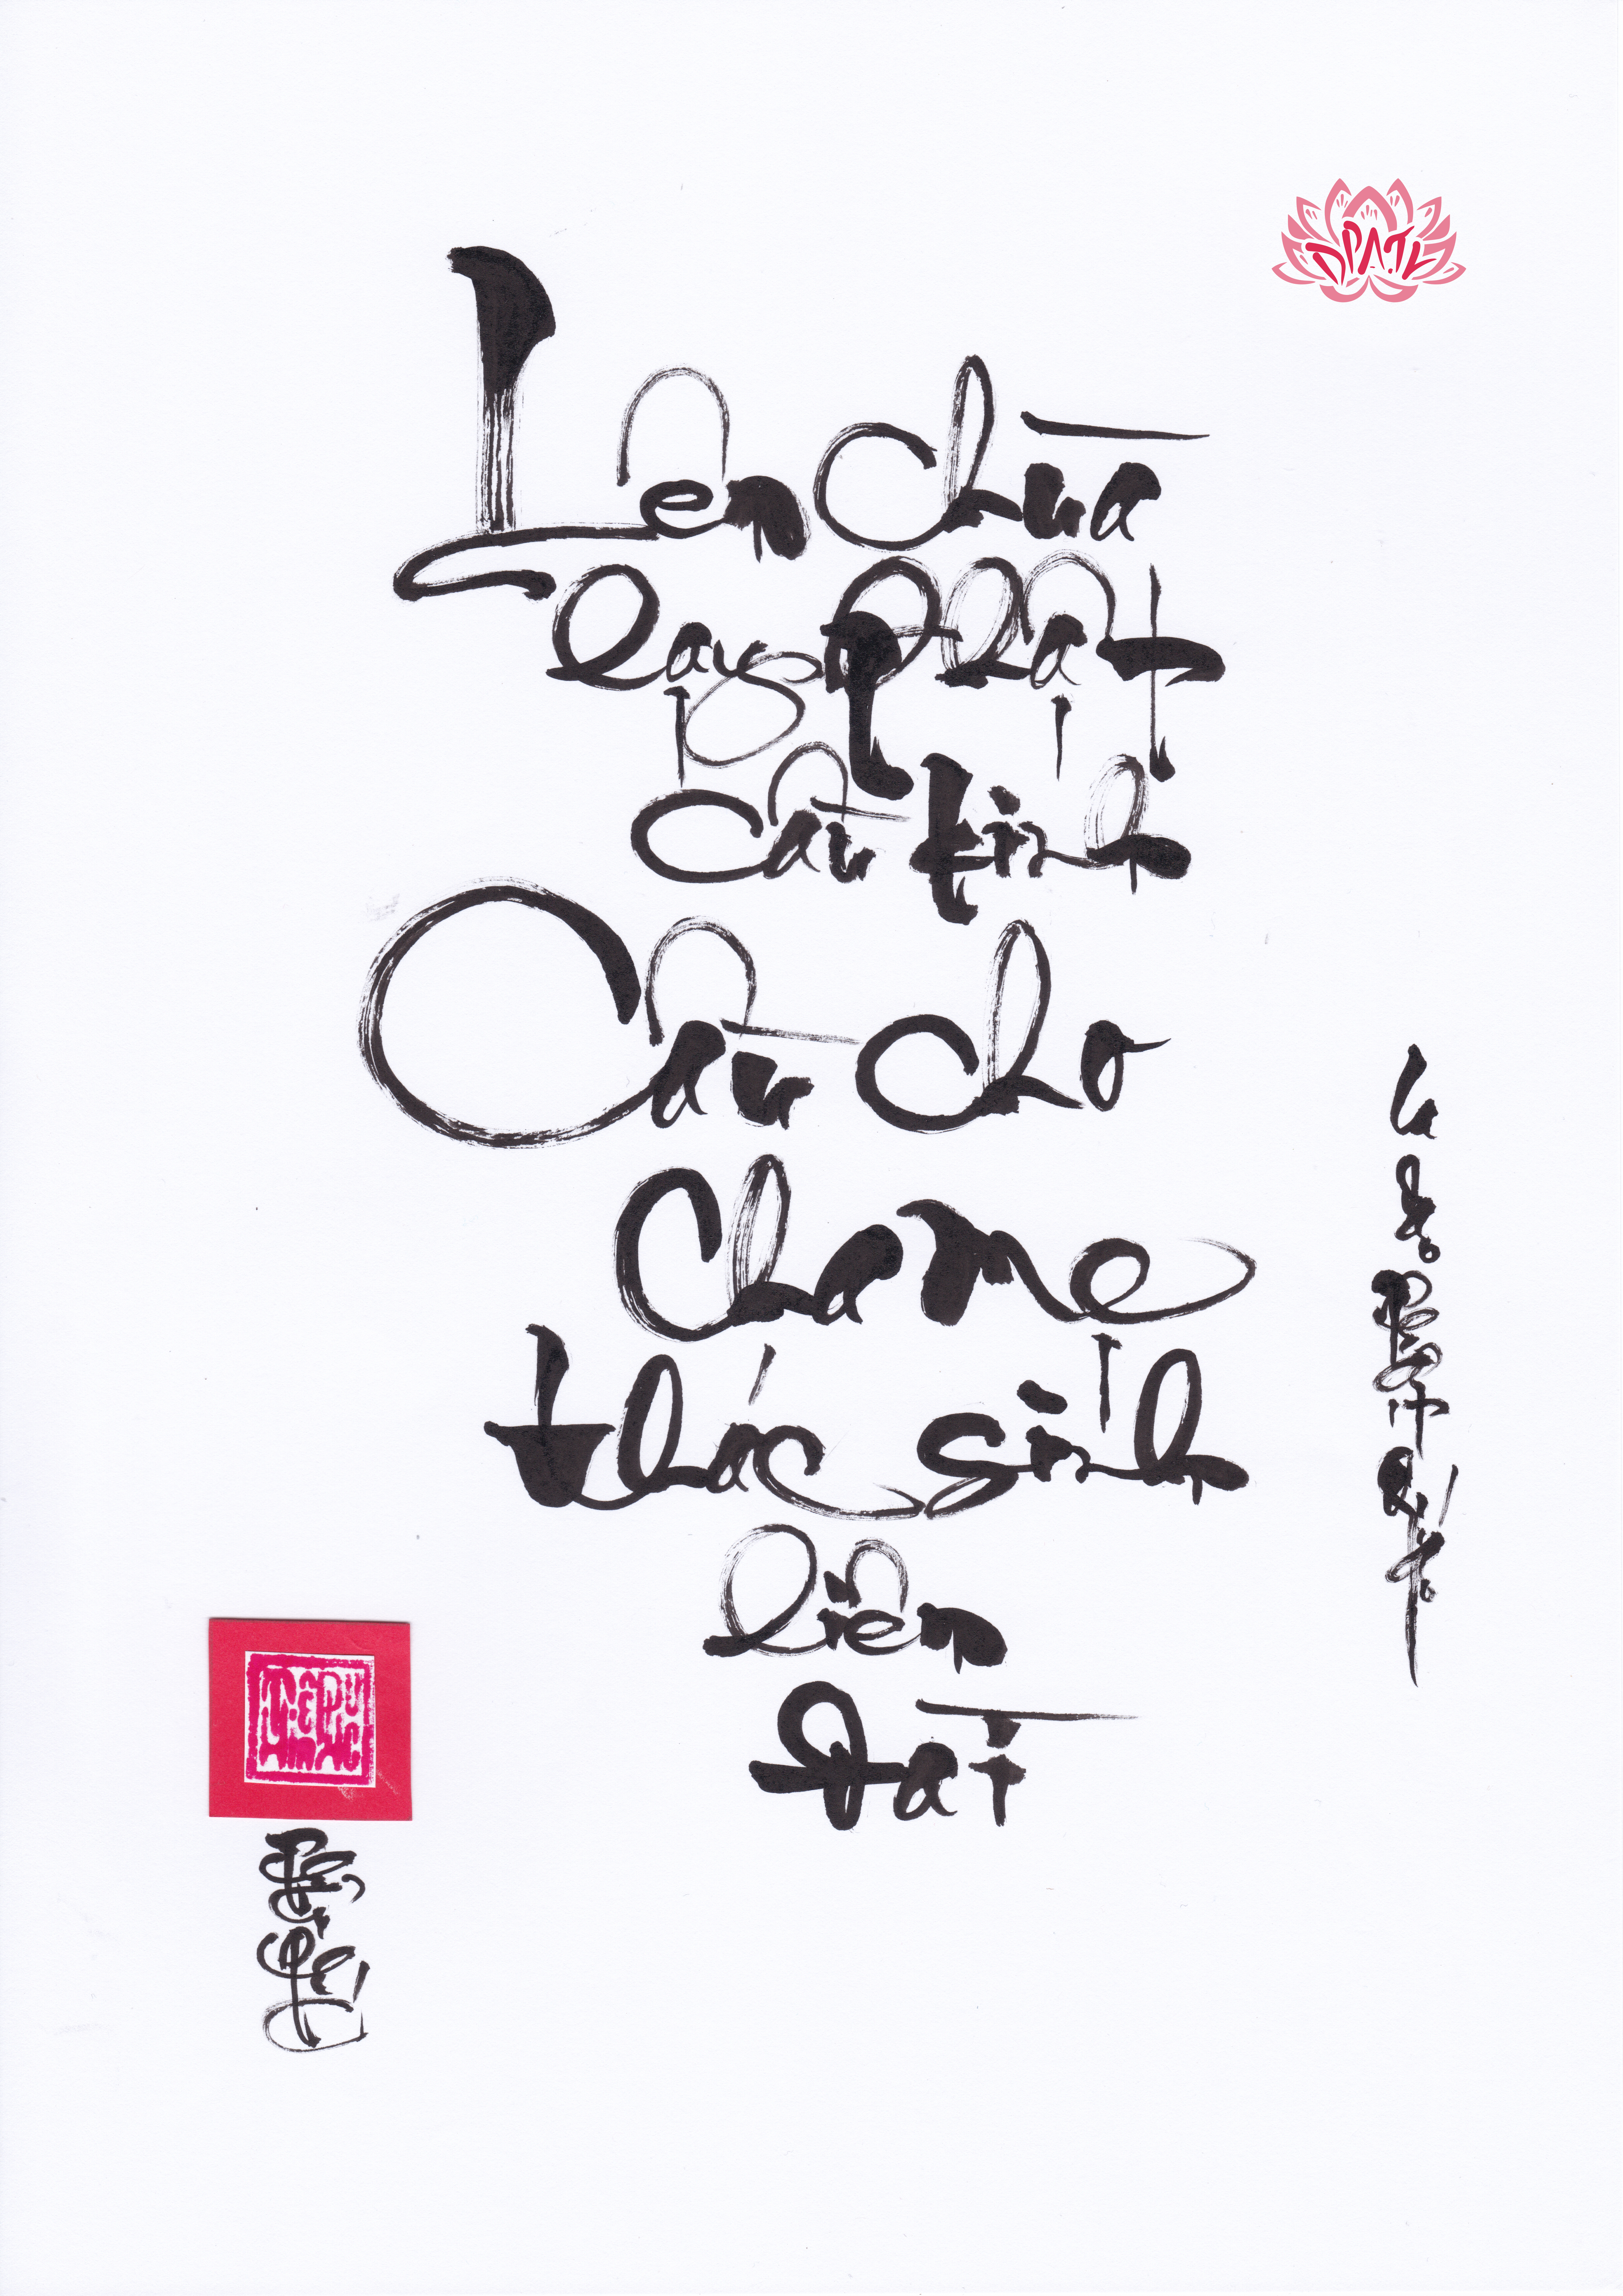 DPATK
Lên chùa
lạy Phật
cầu kinh
Cầu cho
cha mẹ
thác sinh
liên
Đài